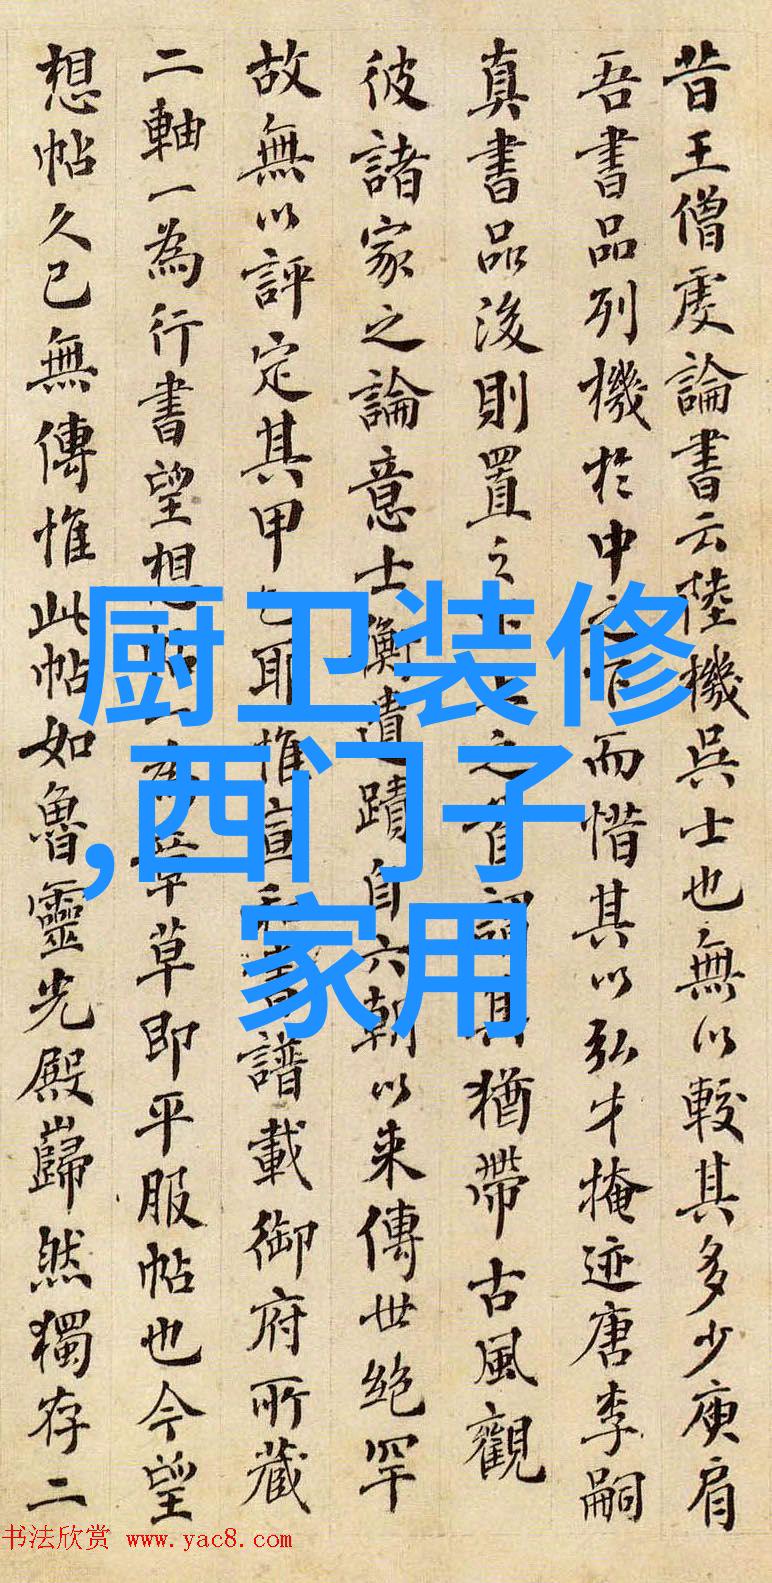 昔王僧虔論書云陸機吳士也無以較其多少庾肩
吾書品列機於中之而惜其以弘才掩迹唐李嗣
真書品後則置之之首謂其猶帶古風觀
彼諸家之論意士衡遺蹟自六朝以来傳世絶罕
故無以評定其甲乙耶惟宣和書譜載御府所藏
二軸一為行書望想帖一為章草即平服帖也今望
想帖久已無傳惟此帖如魯靈光殿巋然獨存二
厨卫装修
,西门子
家用
书法欣赏 www.yac8.com